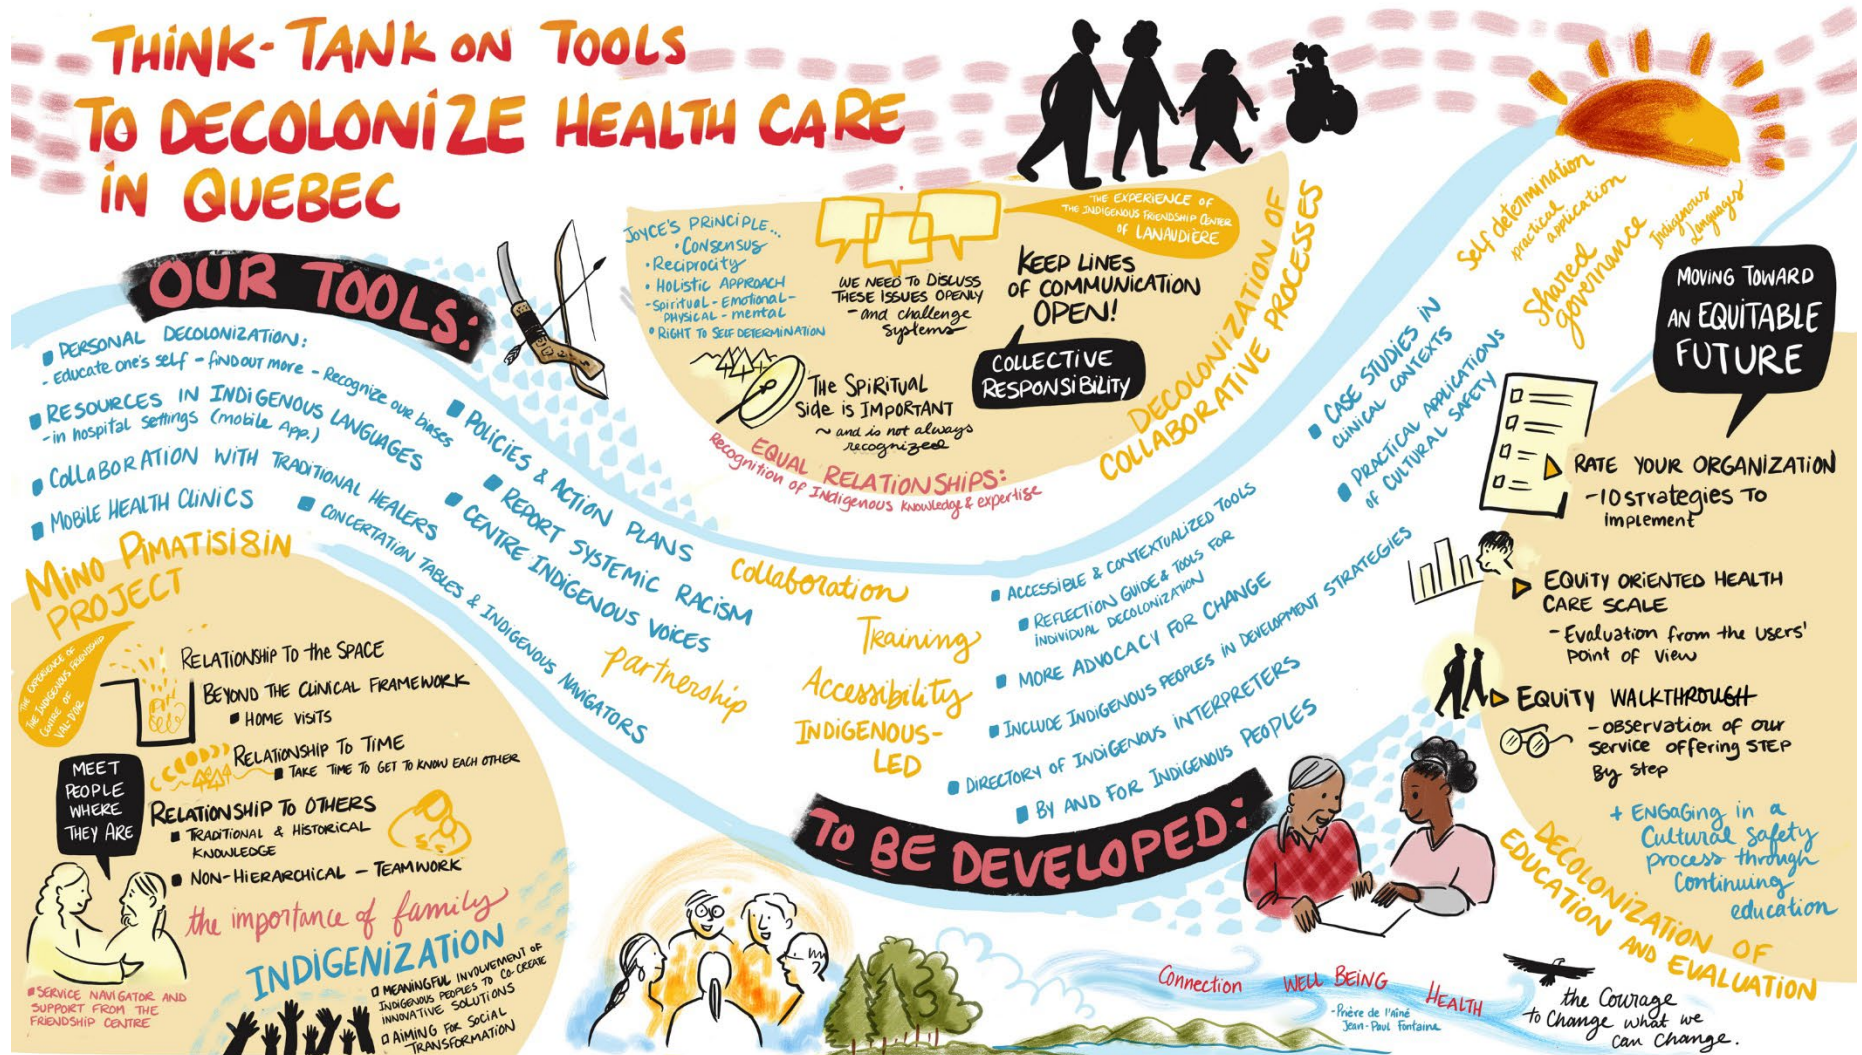 THINK-TANK ON TOOLS
TO DECOLONIZE HEALTH CARE
IN QUEBEC
OUR TOOLS:
PERSONAL DECOLONIZATION:
- Educate one's self - find out more - Recognize our biases
RESOURCES IN INDIGENOUS LANGUAGES
- in hospital settings (mobile App.)
COLLABORATION WITH TRADITIONAL HEALERS
MOBILE HEALTH CLINICS
CONCERTATION TABLES & INDIGENOUS NAVIGATORS
POLICIES & ACTION PLANS
REPORT SYSTEMIC RACISM
CENTRE INDIGENOUS VOICES
JOYCE'S PRINCIPLE...
• Consensus
• Reciprocity
• Holistic APPROACH
- Spiritual - Emotional -
PHYSICAL - mental
• RIGHT TO SELF DETERMINATION
THE EXPERIENCE OF
THE INDIGENOUS FRIENDSHIP CENTER
OF LANAUDIÈRE
WE NEED TO DISCUSS
THESE ISSUES OPENLY
- and challenge
systems
KEEP LINES
OF COMMUNICATION
OPEN!
COLLECTIVE
RESPONSIBILITY
THE SPIRITUAL
Side is IMPORTANT
~ and is not always
recognized
EQUAL RELATIONSHIPS:
Recognition of Indigenous knowledge & expertise
DECOLONIZATION OF
COLLABORATIVE PROCESSES
Self determination
practical
application
Shared
governance
Indigenous
Languages
MOVING TOWARD
AN EQUITABLE
FUTURE
RATE YOUR ORGANIZATION
- 10 strategies TO
implement
EQUITY ORIENTED HEALTH
CARE SCALE
- Evaluation from the users'
Point of View
EQUITY WALKTHROUGH
- OBSERVATION OF OUR
service offering STEP
By Step
+ ENGAGING in a
Cultural Safety
process through
Continuing
education
DECOLONIZATION OF
EDUCATION AND EVALUATION
Collaboration
partnership
Training
Accessibility
INDIGENOUS-
LED
CASE STUDIES IN
CLINICAL CONTEXTS
PRACTICAL APPLICATIONS
OF CULTURAL SAFETY
ACCESSIBLE & CONTEXTUALIZED TOOLS
REFLECTION GUIDE & TOOLS FOR
INDIVIDUAL DECOLONIZATION
MORE ADVOCACY FOR CHANGE
INCLUDE INDIGENOUS PEOPLES IN DEVELOPMENT STRATEGIES
DIRECTORY OF INDIGENOUS INTERPRETERS
BY AND FOR INDIGENOUS PEOPLES
TO BE DEVELOPED:
MINO PIMATISI8IN
PROJECT
THE EXPERIENCE OF
THE INDIGENOUS FRIENDSHIP
CENTRE OF
VAL-D'OR
RELATIONSHIP TO the SPACE
BEYOND THE CLINICAL FRAMEWORK
HOME VISITS
RELATIONSHIP TO TIME
TAKE TIME TO GET TO KNOW EACH OTHER
RELATIONSHIP TO OTHERS
TRADITIONAL & HISTORICAL
KNOWLEDGE
NON-HIERARCHICAL - TEAMWORK
MEET
PEOPLE
WHERE
THEY ARE
the importance of family
SERVICE NAVIGATOR AND
SUPPORT FROM THE
FRIENDSHIP CENTRE
INDIGENIZATION
MEANINGFUL INVOLVEMENT OF
INDIGENOUS PEOPLES TO CO-CREATE
INNOVATIVE SOLUTIONS
AIMING FOR SOCIAL
TRANSFORMATION
Connection
WELL BEING
HEALTH
- Prière de l'aîné
Jean-Paul Fontaine
the Courage
to Change what we
can change.